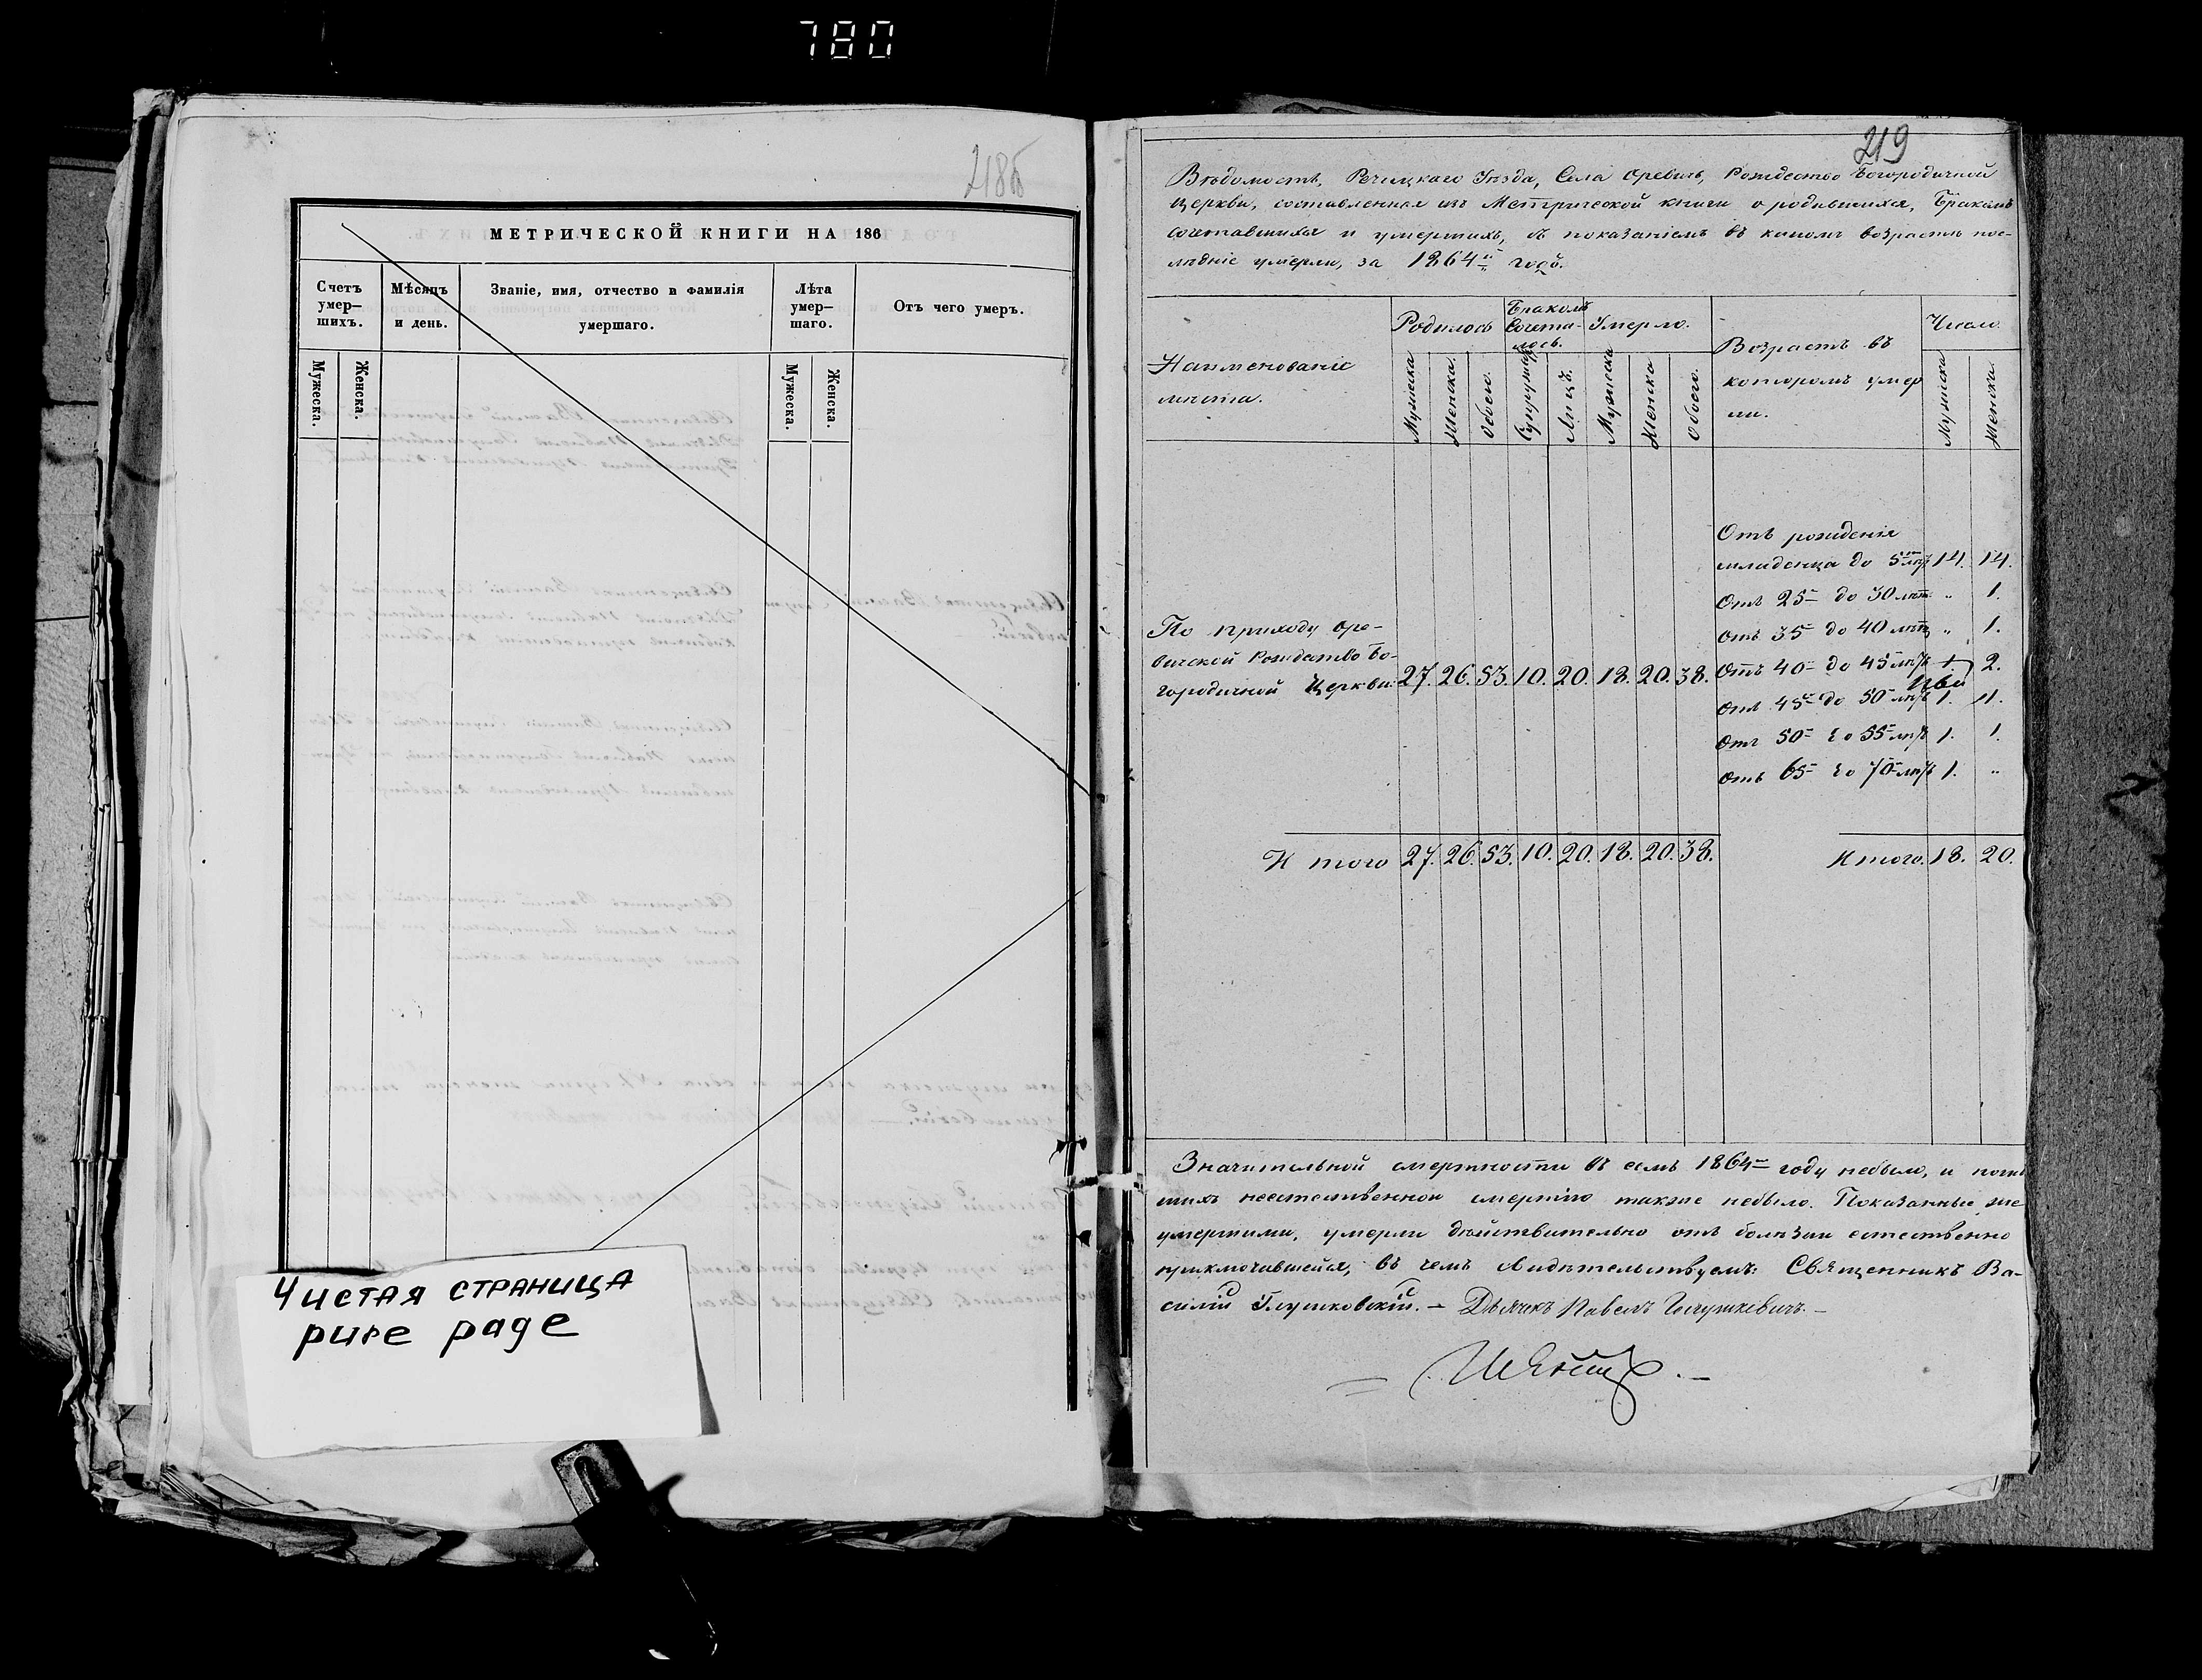 780
218б
МЕТРИЧЕСКОЙ КНИГИ НА 186
Счетъ умер— шихъ.
Мѣсяцъ и день.
Званіе, имя, отчество и фамилія умершаго.
Лѣта умер— шаго.
Отъ чего умеръ.
Мужеска.
Женска.
Мужеска.
Женска.
Чистая страница
pure page
219
Вѣдомость, Речицкаго Уѣзда, Села Оревичь, Рождество Богородичной
Церкви, составленная изъ Метрической книги о родившихся, Бракомъ
сочетавшихся и умершихъ, съ показаніемъ въ какомъ возрастѣ пос-
лѣдніе умерли, за 1864й годъ.
Наименованіе мѣста.
Родилось
Бракомъ Сочета- лось.
Умерло.
Возрастъ въ которомъ умер ли.
Число.
Мужеска
Женска.
Обоего.
Супружествъ
Лицъ.
Мужеска
Женска
Обоего.
Мужеска
Женска.
Отъ рожденія
младенца до 5 лѣтъ 14. 14.
Отъ 25 до 30 лѣтъ „ 1.
Отъ 35 до 40 лѣтъ „ 1.
Отъ 40 до 45 лѣтъ 1. 2.
Отъ 45 до 50 лѣтъ 1. 1.
Отъ 50 до 55 лѣтъ 1. 1.
Отъ 65 до 70 лѣтъ 1. „
По приходу Оре-
вичской Рождество Бо-
городичной Церкви. 27. 26. 53. 10. 20. 18. 20. 38.
И того 27. 26. 53. 10. 20. 18. 20. 38.
И того. 18. 20.
Значительной смертности въ семъ 1864 году небыло, и
шихъ неестественной смертію также небыло. Показанные же
умершими, умерли дѣйствительно отъ болѣзни естественно
приключившейся, въ чемъ свидѣтельствуемъ: Священникъ Ва-
силій Глушковскій. — Дьячекъ Павелъ —